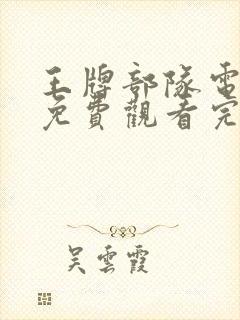 王牌部隊電
免費觀看完
吴雲霞